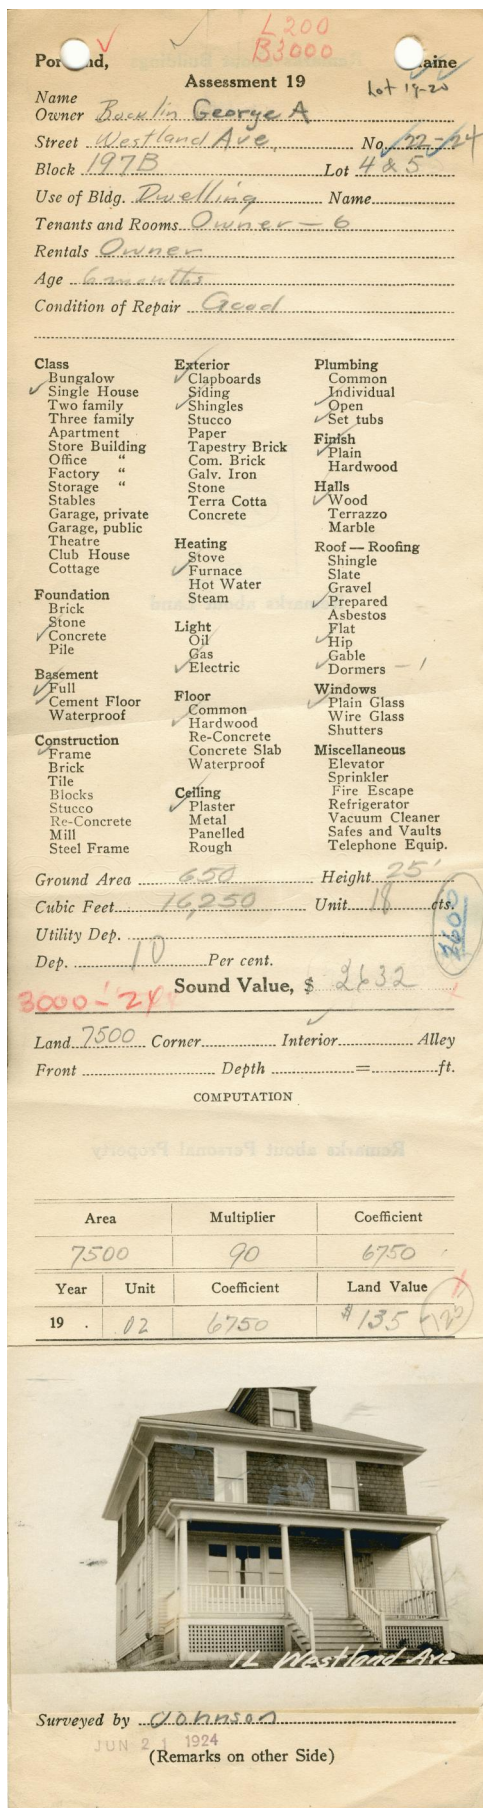 L200
B3000
Por nd, aine
Assessment 19
Lot 19-20
Name
Owner George A
Street Westland Ave, No. 22-24
Block 197B Lot 4 & 5
Use of Bldg. Dwelling Name
Tenants and Rooms Owner - 6
Rentals Owner
Age 6 months
Condition of Repair Good
Class
Bungalow
✓ Single House
Two family
Three family
Apartment
Store Building
Office "
Factory "
Storage "
Stables
Garage, private
Garage, public
Theatre
Club House
Cottage
Foundation
Brick
Stone
✓ Concrete
Pile
Basement
✓ Full
✓ Cement Floor
Waterproof
Construction
✓ Frame
Brick
Tile
Blocks
Stucco
Re-Concrete
Mill
Steel Frame
Exterior
✓ Clapboards
Siding
✓ Shingles
Stucco
Paper
Tapestry Brick
Com. Brick
Galv. Iron
Stone
Terra Cotta
Concrete
Heating
Stove
✓ Furnace
Hot Water
Steam
Light
Oil
Gas
✓ Electric
Floor
Common
✓ Hardwood
Re-Concrete
Concrete Slab
Waterproof
Ceiling
✓ Plaster
Metal
Panelled
Rough
Plumbing
Common
Individual
✓ Open
✓ Set tubs
Finish
✓ Plain
Hardwood
Halls
✓ Wood
Terrazzo
Marble
Roof — Roofing
Shingle
Slate
Gravel
✓ Prepared
Asbestos
Flat
✓ Hip
Gable
✓ Dormers - 1
Windows
✓ Plain Glass
Wire Glass
Shutters
Miscellaneous
Elevator
Sprinkler
Fire Escape
Refrigerator
Vacuum Cleaner
Safes and Vaults
Telephone Equip.
Ground Area 650 Height 25'
Cubic Feet 16,250 Unit 18 cts.
2600
Utility Dep.
Dep. 10 Per cent.
Sound Value, $ 2632
3000 - '24
Land 7500 Corner Interior Alley
Front Depth = ft.
COMPUTATION
Area Multiplier Coefficient
7500 90 6750
Year Unit Coefficient Land Value
19 . .02 6750 $135
Westland Ave
Surveyed by Johnson
JUN 21 1924
(Remarks on other Side)